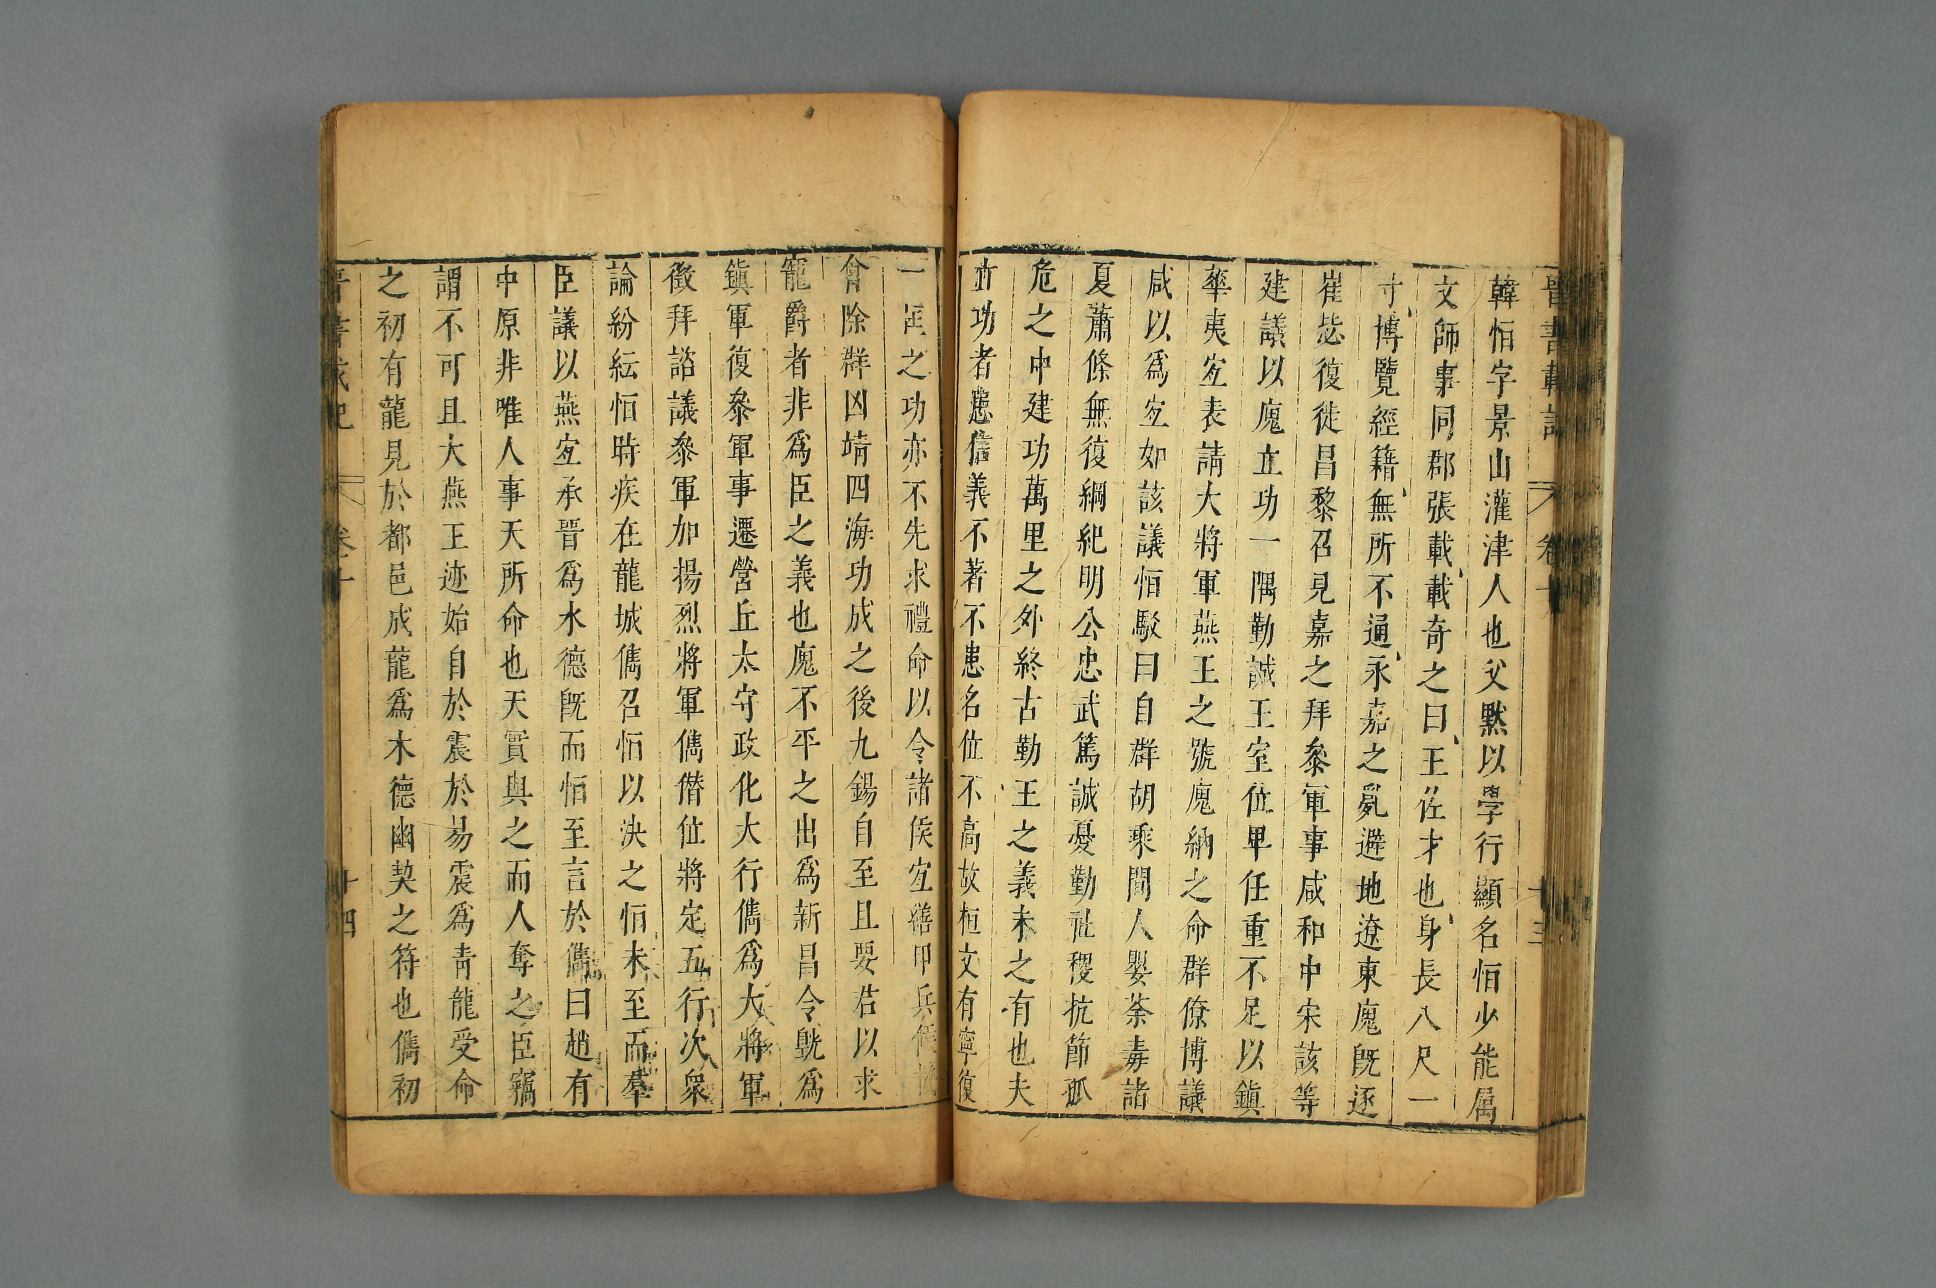 晉書載記 卷十 十三
韓恒字景山灌津人也父默以學行顯名恒少能属
文師事同郡張載載奇之曰王佐才也身長八尺一
寸博覽經籍無所不通永嘉之亂避地遼東廆旣逐
崔毖復徙昌黎召見嘉之拜叅軍事咸和中宋該等
建議以廆立功一隅勤誠王室位卑任重不足以鎮
華夷宜表請大將軍燕王之號廆納之命群僚博議
咸以爲宜如該議恒駁曰自群胡乘間人嬰荼毒諸
夏蕭條無復綱紀明公忠武篤誠憂勤社稷抗節孤
危之中建功萬里之外終古勤王之義未之有也夫
立功者患信義不著不患名位不高故桓文有寧復
一匡之功亦不先求禮命以令諸侯宜繕甲兵候
會除群凶靖四海功成之後九錫自至且要君以求
寵爵者非爲臣之義也廆不平之出爲新昌令皝爲
鎮軍復叅軍事遷營丘太守政化大行儁爲大將軍
徵拜諮議叅軍加揚烈將軍儁僭位將定五行次衆
論紛紜恒時疾在龍城儁召恒以決之恒未至而羣
臣議以燕宜承晉爲水德旣而恒至言於儁曰趙有
中原非唯人事天所命也天實與之而人奪之臣竊
謂不可且大燕王迹始自於震於易震爲青龍受命
之初有龍見於都邑成龍爲木德幽契之符也儁初
晉書載記 卷十 十四